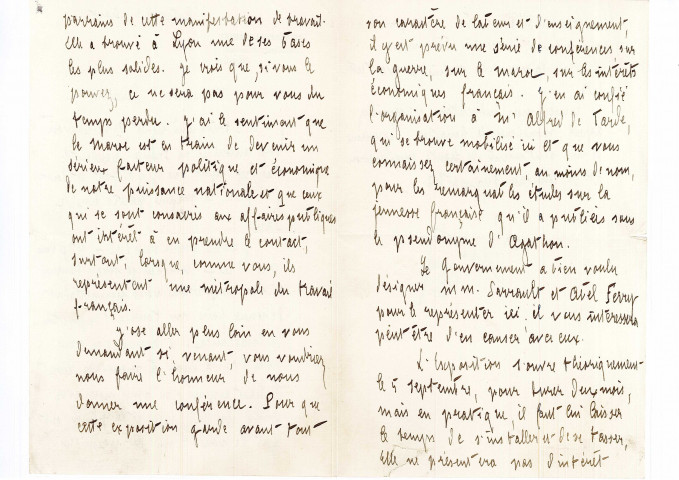 parrains de cette manifestation de travail.
Elle a trouvé à Lyon une de ses bases
les plus solides. Je crois que, si vous le
pouvez, ce ne sera pas pour vous du
temps perdu. J'ai le sentiment que
le Maroc est en train de devenir un
sérieux facteur politique et économique
de notre puissance nationale et que ceux
qui se sont consacrés aux affaires publiques
ont intérêt à en prendre le contact,
surtout, lorsque, comme vous, ils
représentent une métropole du travail
français.
J'ose aller plus loin en vous
demandant si, venant, vous voudriez
nous faire l'honneur de nous
donner une conférence. Pour que
cette exposition garde avant tout
son caractère de labeur et d'enseignement,
il y est prévu une série de conférences sur
la guerre, sur le Maroc, sur les intérêts
économiques français. J'en ai confié
l'organisation à M. Alfred de Tarde,
qui se trouve mobilisé ici et que vous
connaissez certainement, au moins de nom,
pour les remarquables études sur la
jeunesse française qu'il a publiées sous
le pseudonyme d'Agathon.
Le Gouvernement a bien voulu
désigner MM. Sarrault et Abel Ferry
pour le représenter ici. il vous intéressera
peut être d'en causer avec eux.
L'Exposition s'ouvre théoriquement
le 5 septembre, pour durer deux mois,
mais en pratique, il faut lui laisser
le temps de s'installer et de se tasser,
elle ne présentera pas d'intérêt